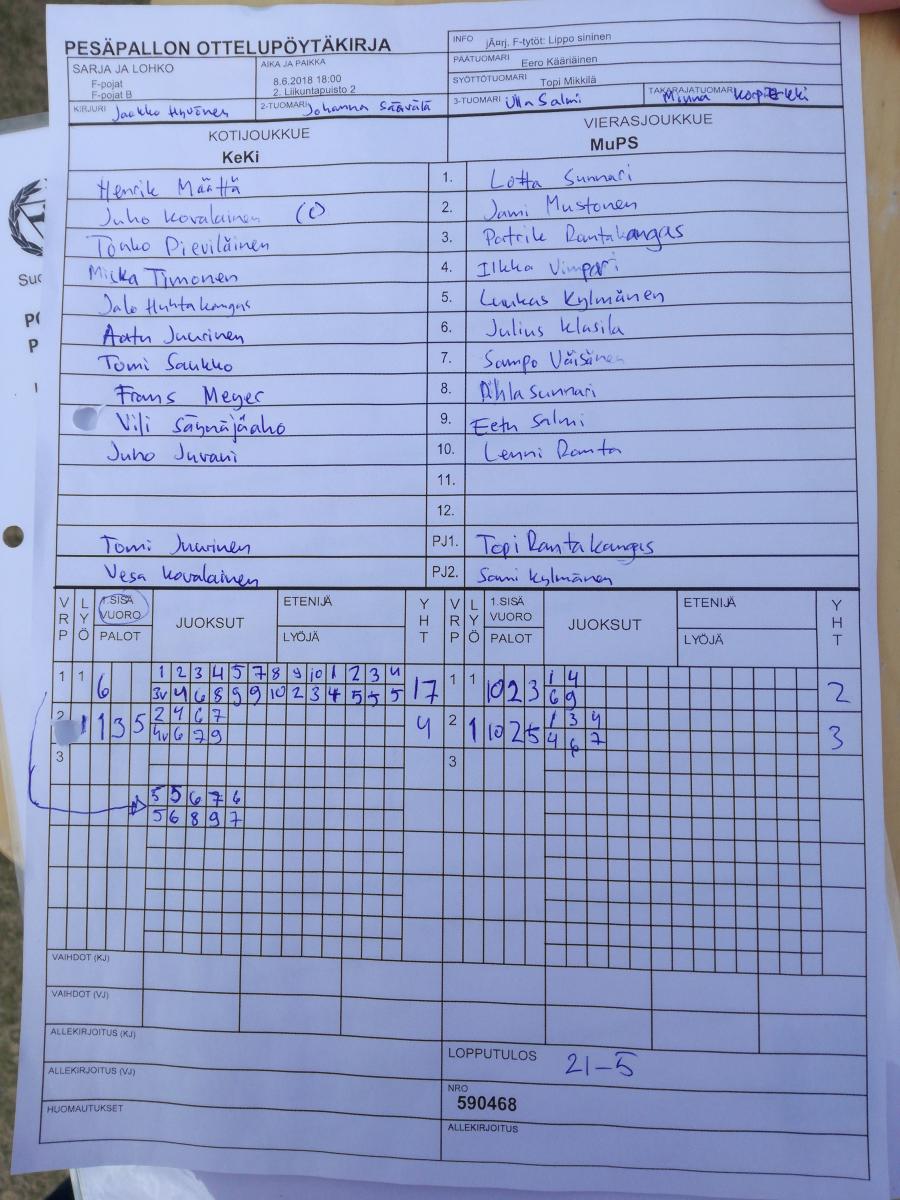 PESÄPALLON OTTELUPÖYTÄKIRJA
INFO jÄ¤rj. F-tytöt: Lippo sininen
PÄÄTUOMARI Eero Kääriäinen
SYÖTTÖTUOMARI Topi Mikkilä
SARJA JA LOHKO
F-pojat
F-pojat B
AIKA JA PAIKKA
8.6.2018 18:00
2. Liikuntapuisto 2
KIRJURI Jaakko Hyvönen 2-TUOMARI Johanna Säävälä 3-TUOMARI Ulla Salmi TAKARAJATUOMARI Minna
KOTIJOUKKUE VIERASJOUKKUE
KeKi MuPS
Henrik Määttä 1. Lotta Sunnari
Juho Kovalainen (C) 2. Jami Mustonen
Tonko Pieviläinen 3. Patrik Rantakangas
Miska Timonen 4. Ilkka Vimpari
Jalo Huhtakangas 5. Luukas Kylmänen
Aatu Juurinen 6. Julius Klasila
Tomi Saukko 7. Sampo Väisänen
Frans Meyer 8. Sunnari
Vili Särmäjäaho 9. Eetu Salmi
Juho Juvani 10. Lenni Ranta
11.
12.
Tomi Juurinen PJ1. Topi Rantakangas
Vesa Kovalainen PJ2. Sami Kylmänen
VRP LYÖ 1.SISÄ VUORO PALOT JUOKSUT ETENIJÄ LYÖJÄ YHT VRP LYÖ 1.SISÄ VUORO PALOT JUOKSUT ETENIJÄ LYÖJÄ YHT
1 1 6 1 2 3 4 5 7 8 9 10 1 2 3 4 17 1 1 10 2 3 1 4 2
3v 4 6 8 9 9 10 2 3 4 5 5 5 6 9
2 1 1 3 5 2 4 6 7 4 2 1 10 2 5 1 3 4 3
4v 6 7 9 4 6 7
3 3
5 5 6 7 6
5 6 8 9 7
VAIHDOT (KJ)
VAIHDOT (VJ)
ALLEKIRJOITUS (KJ)
LOPPUTULOS 21-5
ALLEKIRJOITUS (VJ)
NRO
590468
HUOMAUTUKSET
ALLEKIRJOITUS